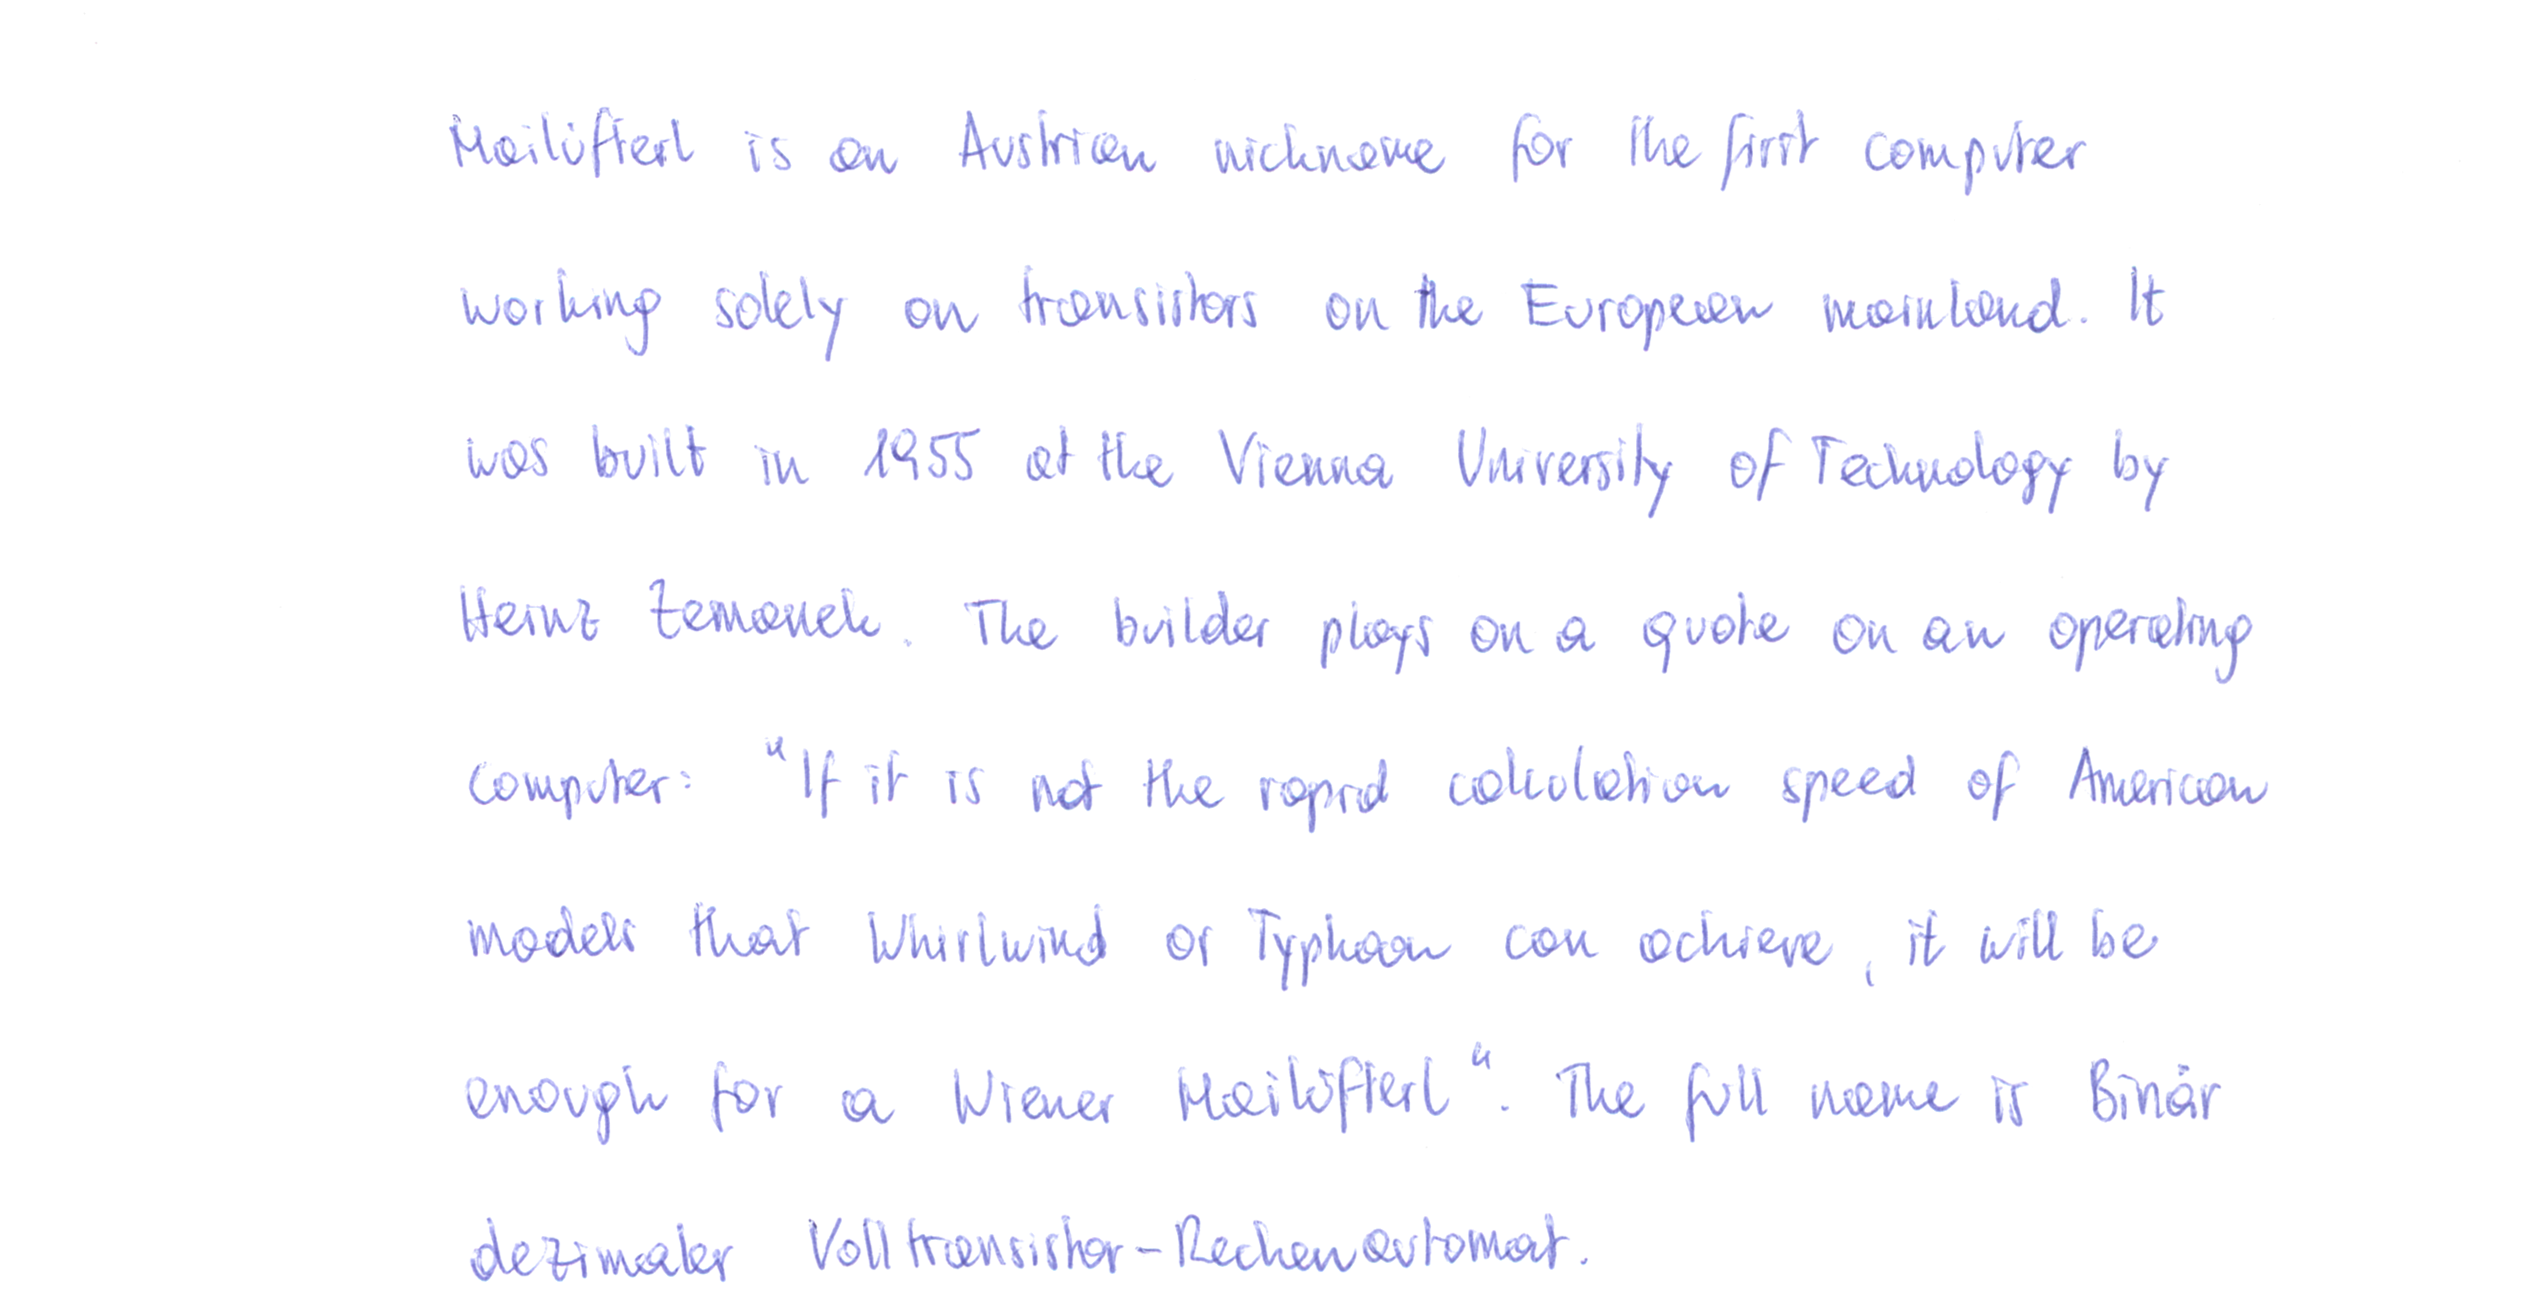 Mailüfterl is an Austrian nickname for the first computer
working solely on transistors on the European mainland. It
was built in 1955 at the Vienna University of Technology by
Heinz Zemanek. The builder plays on a quote on an operating
computer: "If it is not the rapid calculation speed of American
models that Whirlwind or Typhoon can achieve, it will be
enough for a Wiener Mailüfterl". The full name is Binär
dezimaler Volltransistor-Rechenautomat.